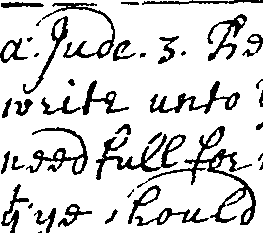 a: Jude. 3. He
write unto
needfull for
yt ye should